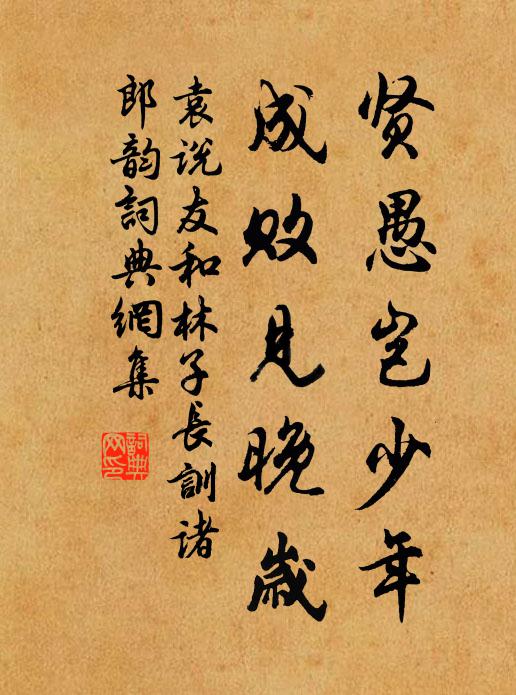 贤愚岂少年
成败见晚歲
袁说友和林子長訓诸
郎韵詞典網集
詞典
网印